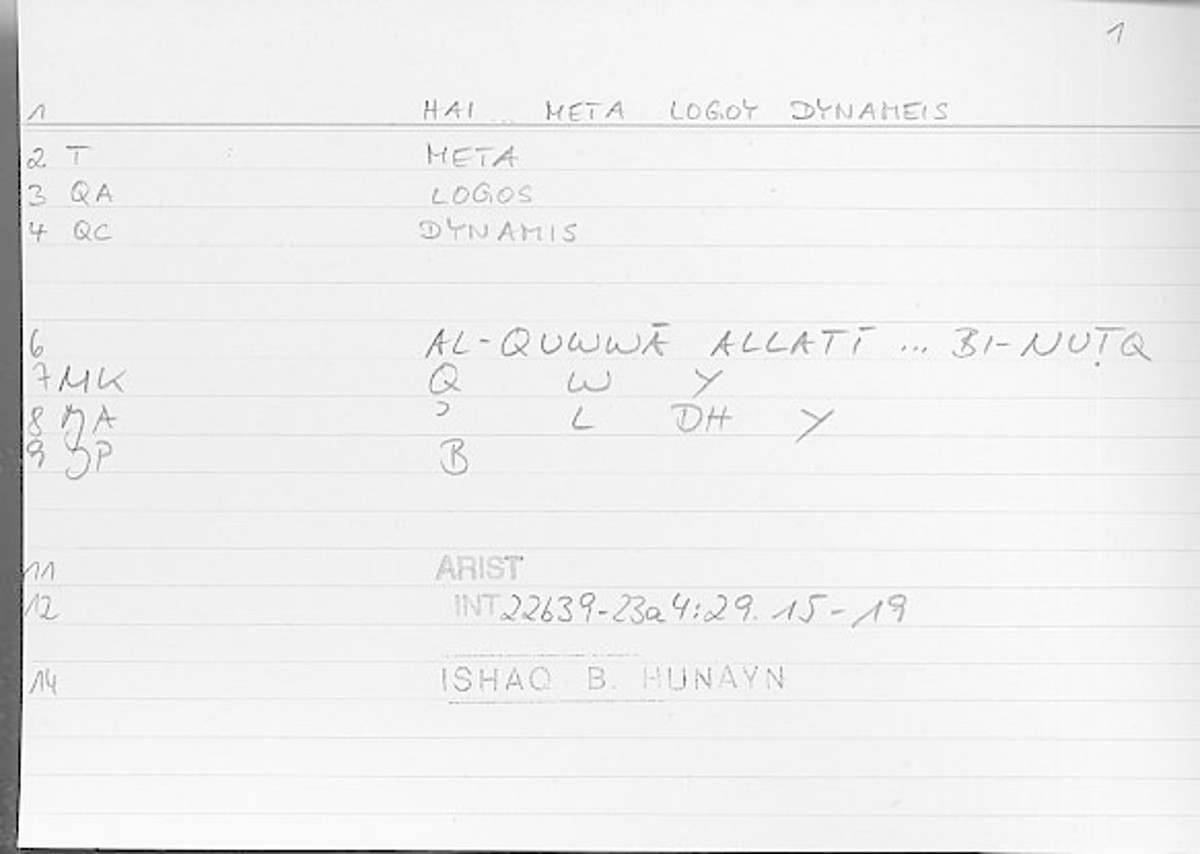 1
1 HAI ... META LOGOY DYNAMEIS
2 T META
3 QA LOGOS
4 QC DYNAMIS
6 AL-QUWWĀ ALLATĪ ... BI-NUṬQ
7 MK Q W Y
8 A ʾ L DH Y
9 P B
11 ARIST
12 INT 22b39-23a4:29.15-19
14 ISHAQ B. HUNAYN